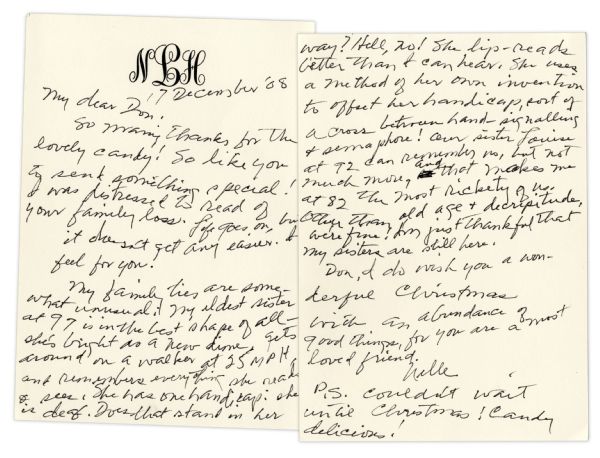 NLH
17 December '08
My dear Don:
So many thanks for the
lovely candy! So like you
to send something special!
I was distressed to read of
your family loss. Life goes on, but
it doesn't get any easier. I
feel for you.
My family ties are some-
what unusual: My eldest sister
at 97 is in the best shape of all -
she's bright as a new dime, gets
around on a walker at 25 MPH,
and remembers everything she reads
& sees. She has one handicap: she
is deaf. Does that stand in her
way? Hell, no! She lip-reads
better than I can hear. She uses
a method of her own invention
to offset her handicap, sort of
a cross between hand-signalling
& semaphore! Our sister Louise
at 92 can remember us, but not
much more, and that makes me
at 82 the most rickety of us.
Other than old age & decrepitude,
we're fine! I'm just thankful that
my sisters are still here.
Don, I do wish you a won-
derful Christmas
with an abundance of
good things, for you are a most
loved friend.
Nelle
P.S. Couldn't wait
until Christmas! Candy
delicious!